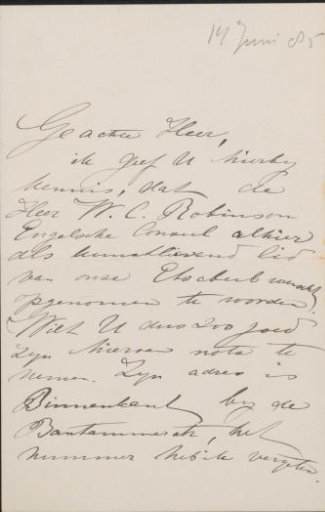 14 Juni 85
Geachte Heer,
ik geef U hierby
kennis, dat de
Heer W. C. Robinson
Engelsche Consul alhier
als kunstlievend lid
van onze Etsclub wenscht
opgenomen te worden.
Wilt U dus zoo goed
zyn hiervan nota te
nemen. Zyn adres is
Binnenkant by de
Bantammerstr, het
nummer heb ik vergeten.